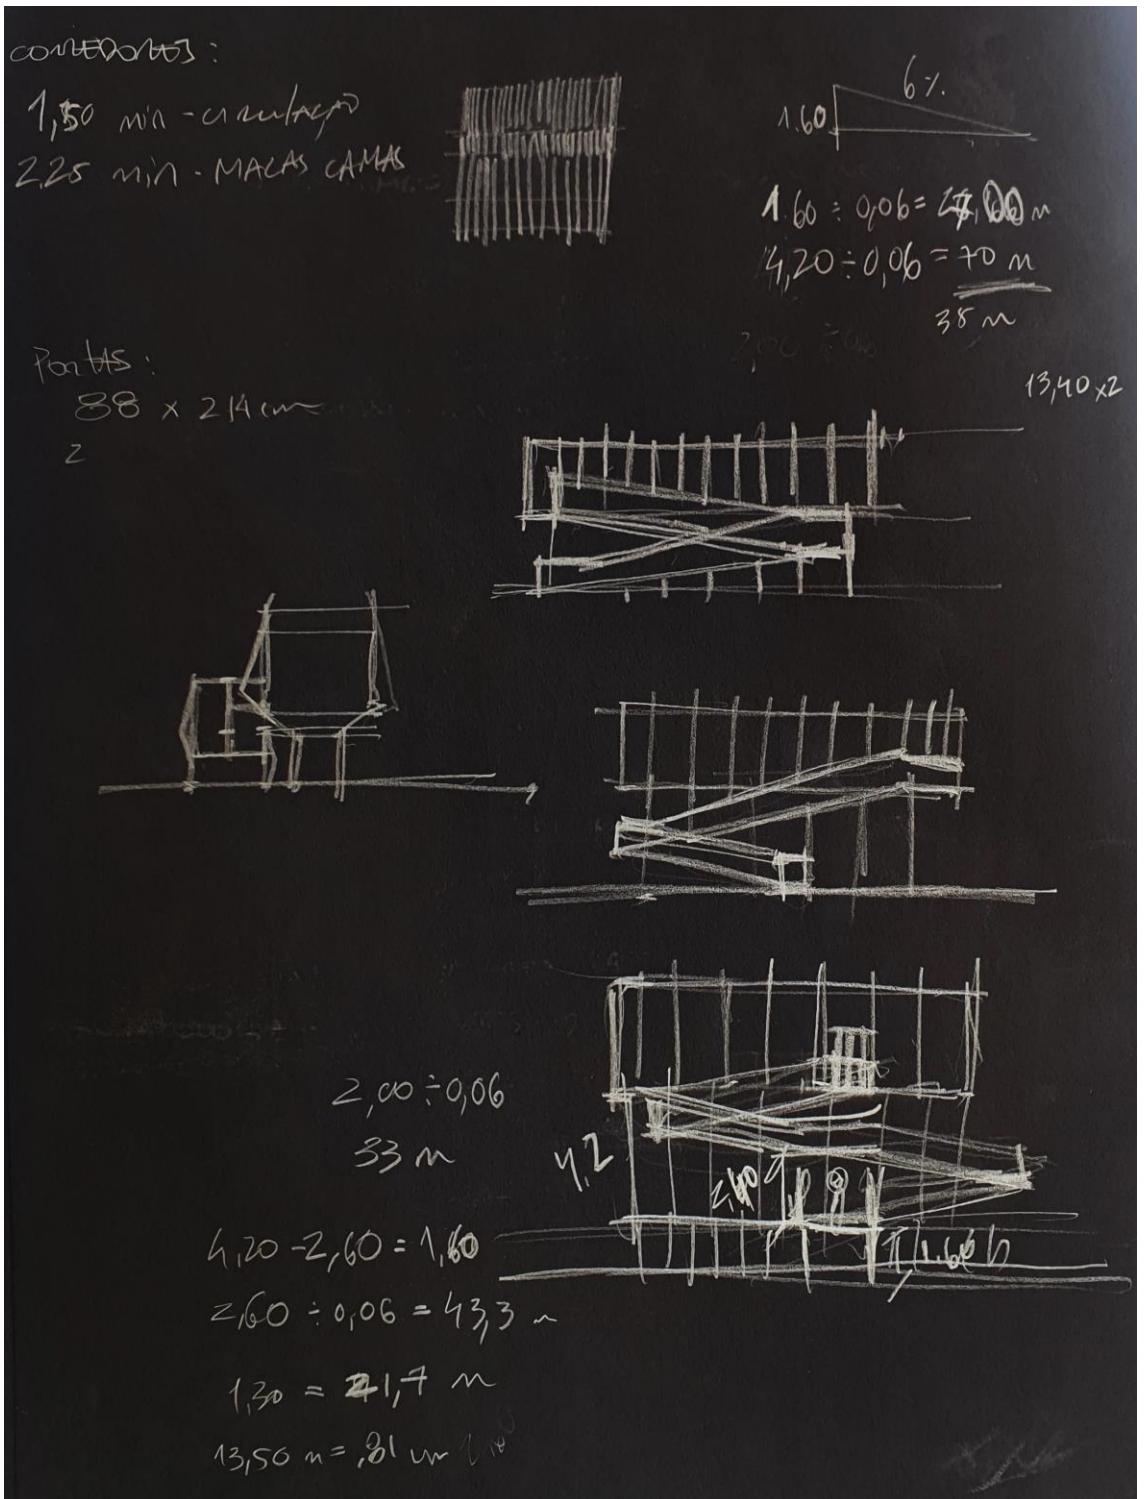 CORREDORES:
1,50 min - circulação
2.25 min - MACAS CAMAS
6%
1.60
1.60 ÷ 0,06 = m
4,20 ÷ 0,06 = 70 m
38 m
Portas:
88 x 214 cm
2
13,40 x2
2,00 ÷ 0,06
33 m
4,2
2,40
1.60
4,20 - 2,60 = 1,60
2,60 ÷ 0,06 = 43,3 m
1,30 = 21,7 m
13,50 m = ,81 cm